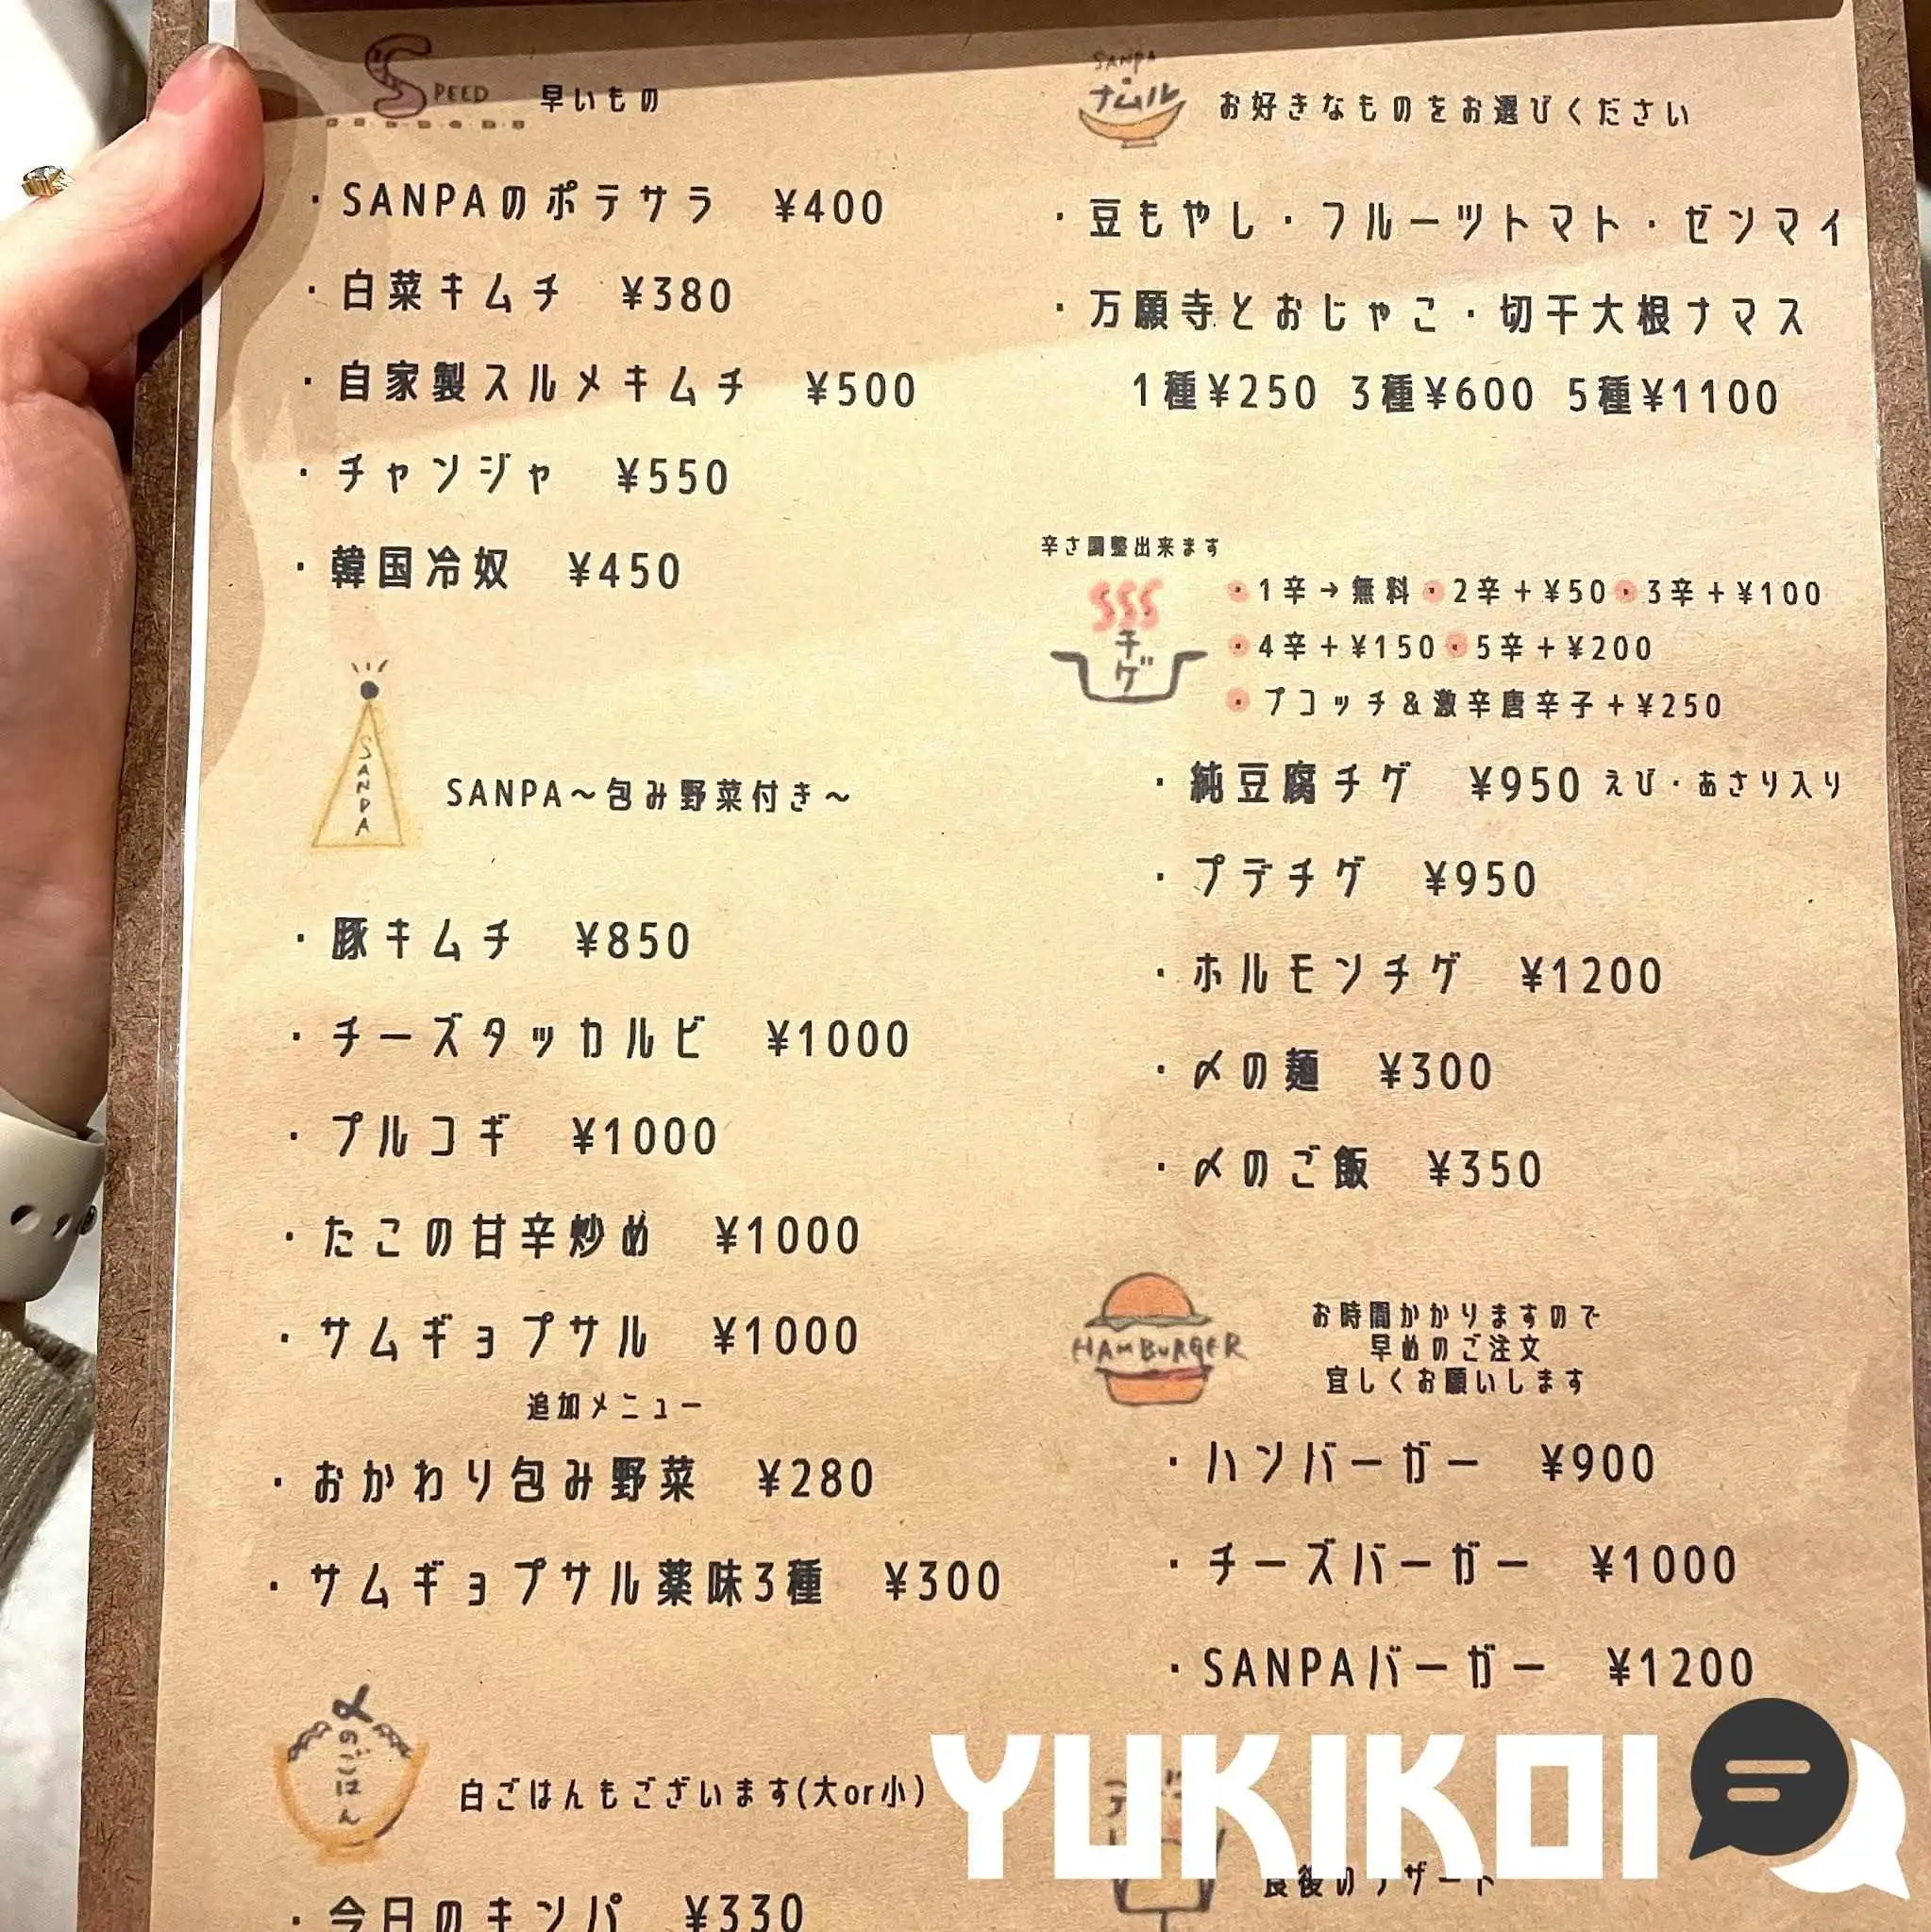 SPEED 早いもの
・SANPAのポテサラ ¥400
・白菜キムチ ¥380
・自家製スルメキムチ ¥500
・チャンジャ ¥550
・韓国冷奴 ¥450
SANPA
SANPA〜包み野菜付き〜
・豚キムチ ¥850
・チーズタッカルビ ¥1000
・プルコギ ¥1000
・たこの甘辛炒め ¥1000
・サムギョプサル ¥1000
追加メニュー
・おかわり包み野菜 ¥280
・サムギョプサル薬味3種 ¥300
〆のごはん
白ごはんもございます(大or小)
・今日のキンパ ¥330
SANPA
ナムル
お好きなものをお選びください
・豆もやし・フルーツトマト・ゼンマイ
・万願寺とおじゃこ・切干大根ナマス
1種¥250 3種¥600 5種¥1100
辛さ調整出来ます
チゲ
・1辛→無料・2辛+¥50・3辛+¥100
・4辛+¥150・5辛+¥200
・プコッチ&激辛唐辛子+¥250
・純豆腐チゲ ¥950 えび・あさり入り
・プデチゲ ¥950
・ホルモンチゲ ¥1200
・〆の麺 ¥300
・〆のご飯 ¥350
HAMBURGER
お時間かかりますので
早めのご注文
宜しくお願いします
・ハンバーガー ¥900
・チーズバーガー ¥1000
・SANPAバーガー ¥1200
食後のデザート
YUKIKOI